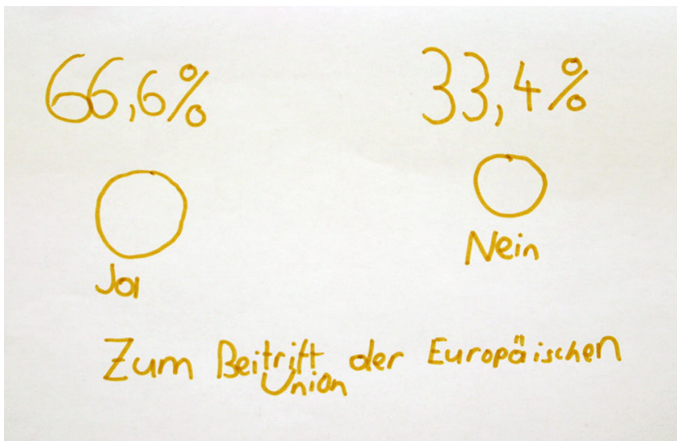 66,6% 33,4%
Ja Nein
Zum Beitritt der Europäischen
Union